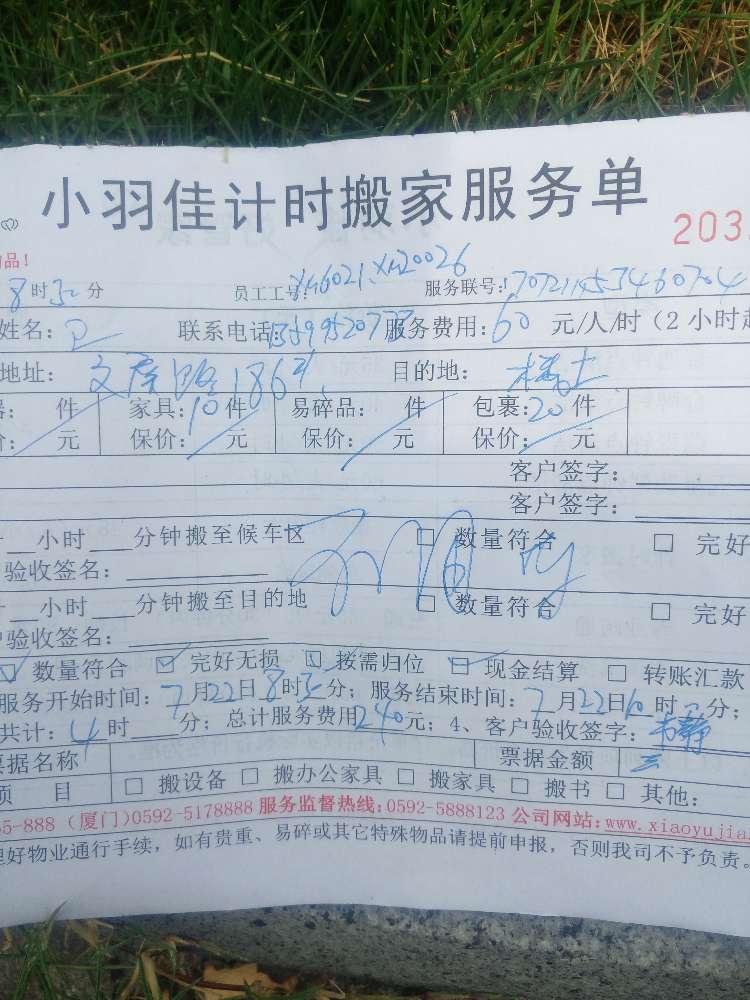 小羽佳计时搬家服务单
203
品！
8时30分 员工工号: XM6021、XM20026 服务联号:
姓名: 联系电话: 服务费用: 60 元/人/时（2小时起
地址: 186号 目的地:
件 家具: 10件 易碎品: 件 包裹: 20件
价: 元 保价: 元 保价: 元 保价: 元
客户签字:
客户签字:
小时 分钟搬至候车区 □ 数量符合 □ 完好
验收签名:
小时 分钟搬至目的地 □ 数量符合 □ 完好
户验收签名:
☑ 数量符合 ☑ 完好无损 ☑ 按需归位 ☑ 现金结算 □ 转账汇款
服务开始时间: 7月22日8时30分; 服务结束时间: 7月22日10时30分;
共计: 4时 分; 总计服务费用240元; 4、客户验收签字:
票据名称 票据金额
项 目 □ 搬设备 □ 搬办公家具 □ 搬家具 □ 搬书 □ 其他:
55-888 (厦门)0592-5178888 服务监督热线: 0592-5888123 公司网站: www.xiaoyujia.
理好物业通行手续，如有贵重、易碎或其它特殊物品请提前申报，否则我司不予负责。